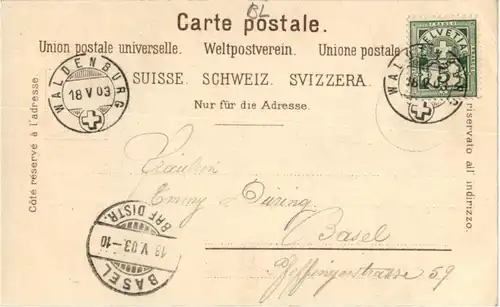 BL
Carte postale.
Union postale universelle. Weltpostverein. Unione postale
SUISSE. SCHWEIZ. SVIZZERA.
Nur für die Adresse.
Côté réservé à l'adresse
riservato all' indirizzo.
WALDENBURG
18 V 03
HELVETIA
5
WALDENBURG
18 V 03
Fräulein
Emmy Düring
Basel
Pfeffingerstrasse 59
BASEL
18 V. 03 — 10
BRF. DISTR.